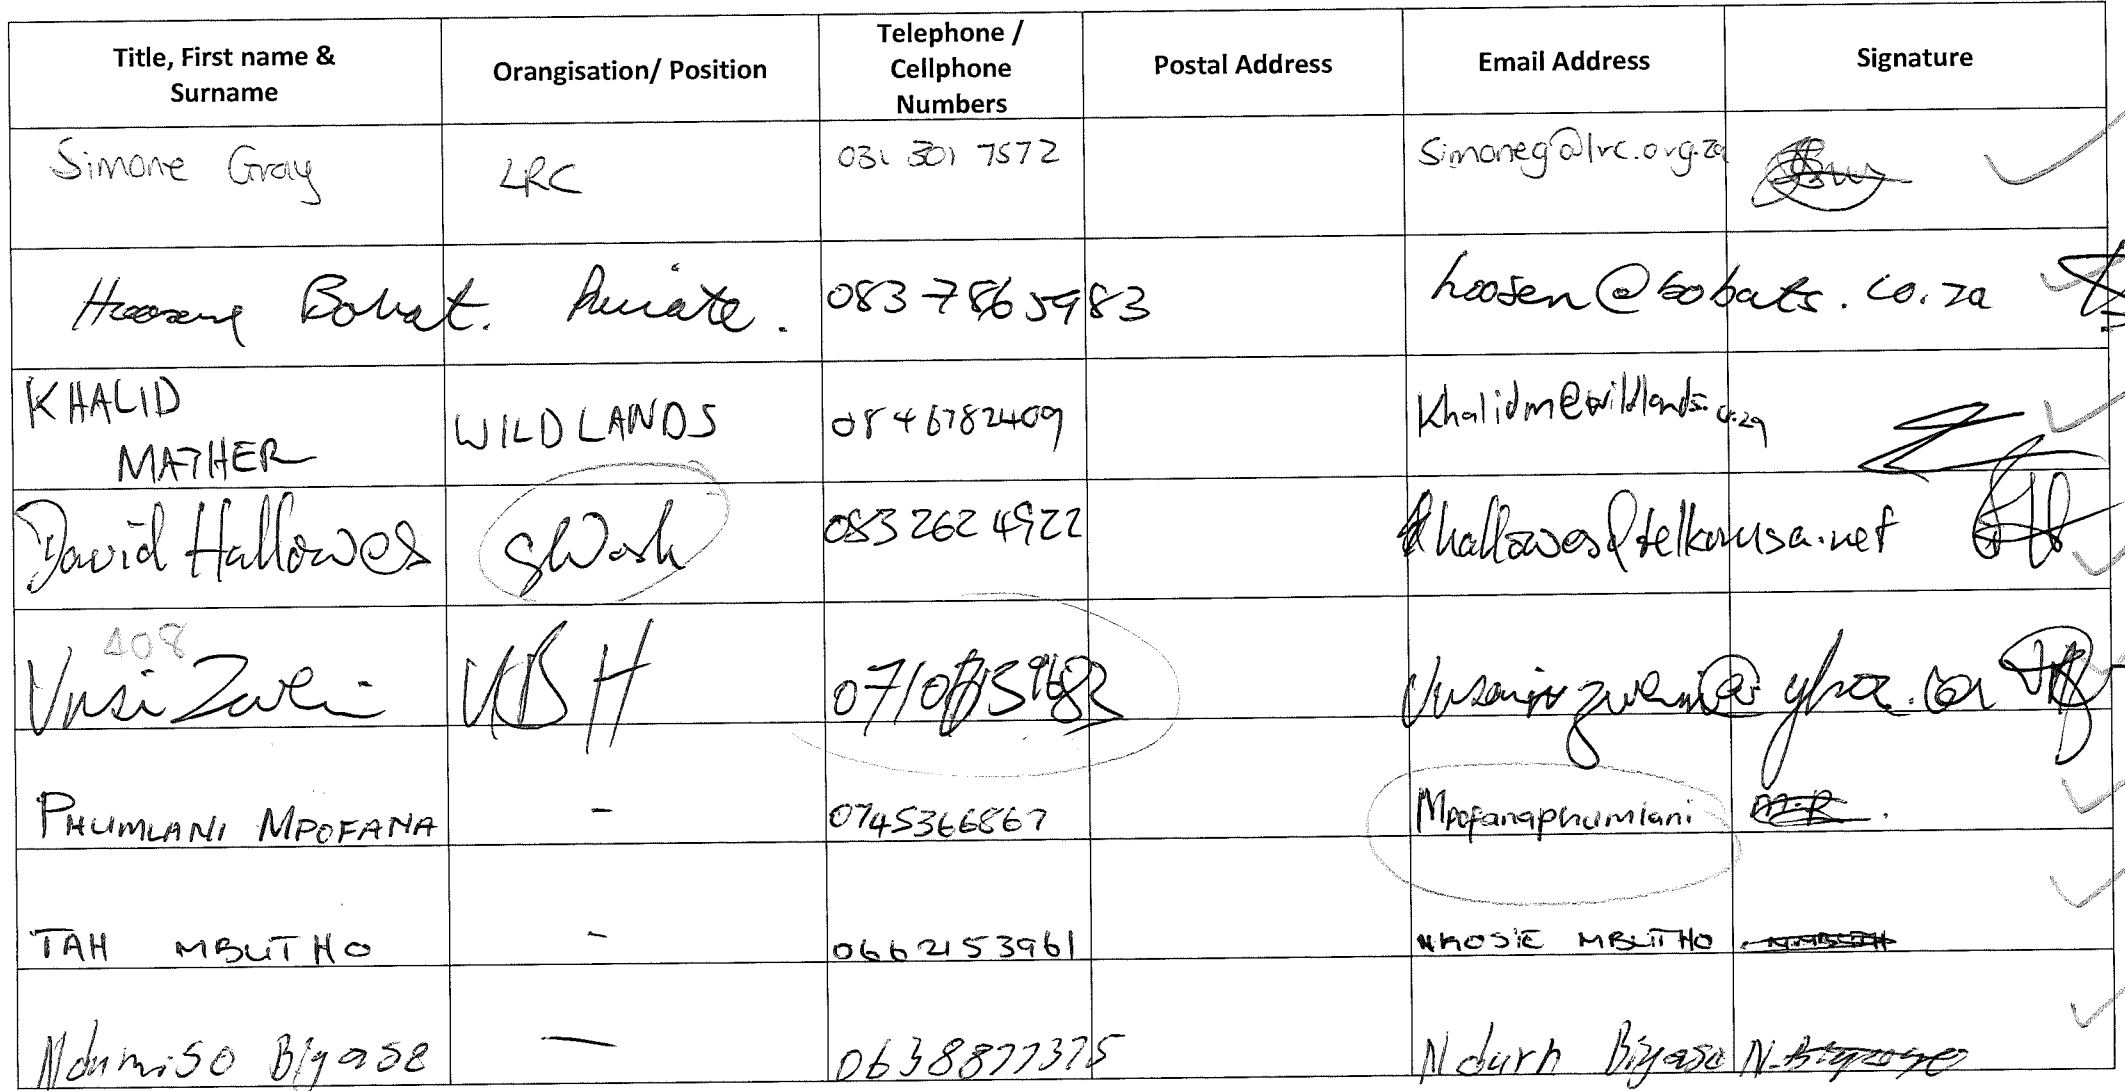 Title, First name & Surname
Orangisation/ Position
Telephone / Cellphone Numbers
Postal Address
Email Address
Signature
Simone Gray LRC 031 301 7572 Simoneg@lrc.org.za
Bobat. Private. 083 786 5983 hoosen@bobats.co.za
KHALID MATHER WILDLANDS 0846782409 Khalidm@wildlands.co.za
David Hallowes 083 262 4922 hallowes@telkomsa.net
408
Vusi KBH
PHUMLANI MPOFANA - 0745366867 Mpofanaphumlani
TAH MBUTHO - 0662153961 NKOSIE MBUTHO
Ndumiso Biyase — 0638877375 Biyase